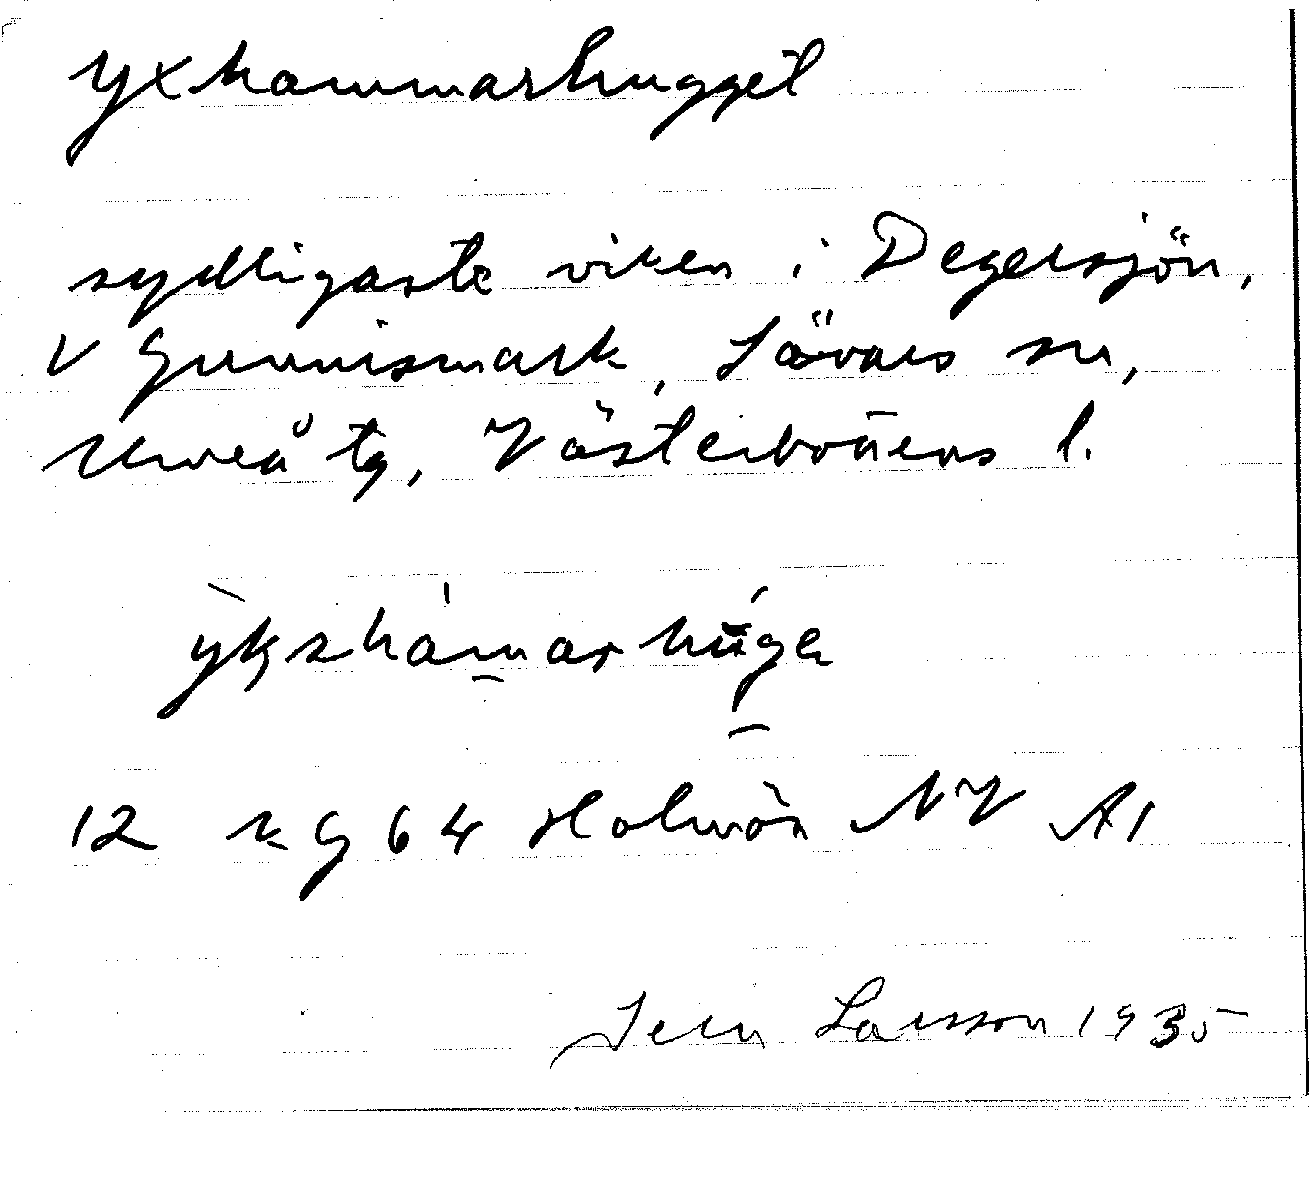 Yxhammarhugget
sydligaste viken i Degersjön,
V Gunnismark, Sävars sn,
Umeå tg, Västerbottens l.
ỳkshámarhúge
12 k g 64 Holmön NV A1
Larsson 1935